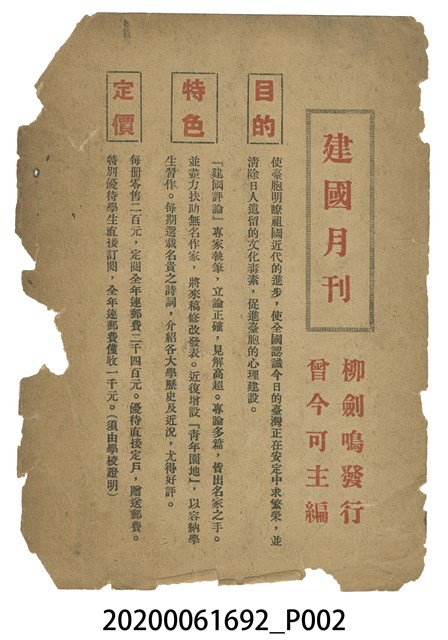 建國月刊
柳劍鳴發行
曾今可主編
目的
使臺胞明瞭祖國近代的進步，使全國認識今日的臺灣正在安定中求繁榮，並
清除日人遺留的文化毒素，促進臺胞的心理建設。
特色
『建國評論』專家執筆，立論正確，見解高超。專論多篇，皆出名家之手。
並盡力扶助無名作家，將來稿修改發表。近復增設『青年園地』，以容納學
生習作。每期選載名貴之詩詞，介紹各大學歷史及近況，尤得好評。
定價
每冊零售二百元，定閱全年連郵費二千四百元。優待直接定戶，贈送郵費。
特別優待學生直接訂閱，全年連郵費僅收一千元。（須由學校證明）
20200061692_P002